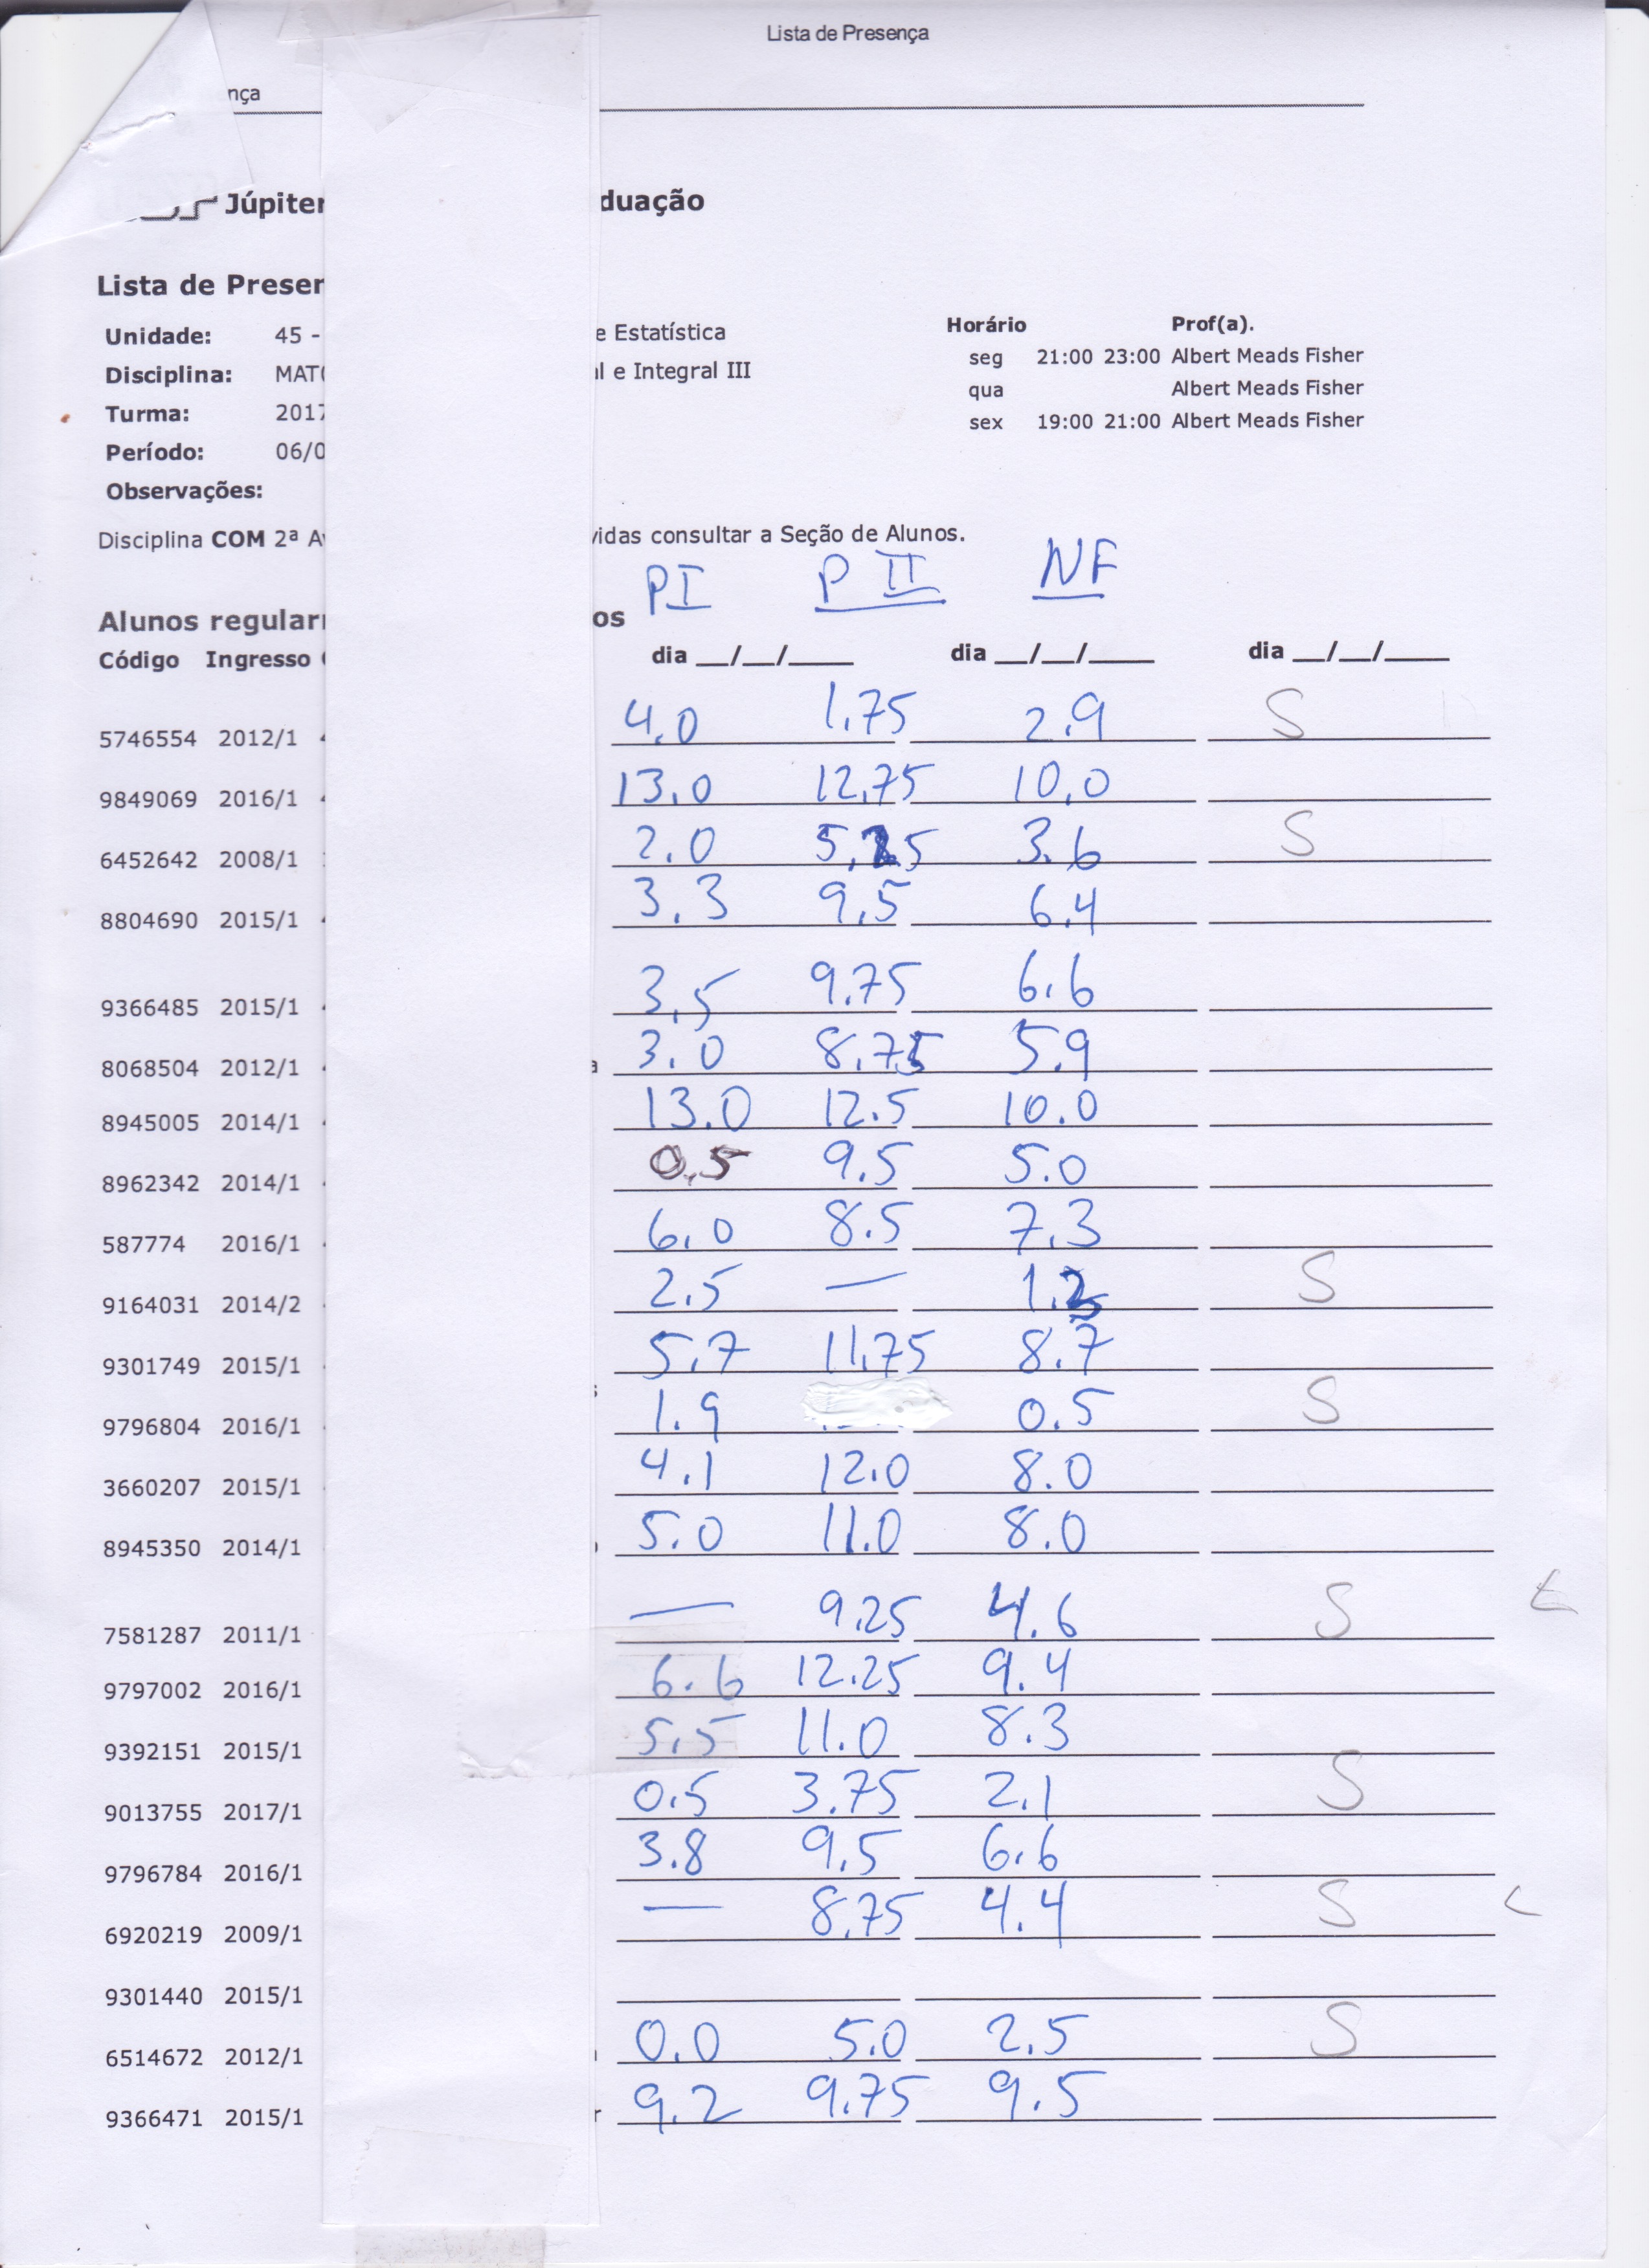 Lista de Presença
nça
Júpiter duação
Lista de Preser
Unidade: 45 - e Estatística Horário Prof(a).
seg 21:00 23:00 Albert Meads Fisher
Disciplina: MAT0 al e Integral III
qua Albert Meads Fisher
Turma: 2017
sex 19:00 21:00 Albert Meads Fisher
Período: 06/0
Observações:
Disciplina COM 2ª A vidas consultar a Seção de Alunos.
PI P II NF
Alunos regular os
Código Ingresso dia __/__/____ dia __/__/____ dia __/__/____
5746554 2012/1 4.0 1.75 2.9 S
9849069 2016/1 13.0 12.75 10.0
6452642 2008/1 2.0 5.25 3.6 S
8804690 2015/1 3.3 9.5 6.4
9366485 2015/1 3.5 9.75 6.6
8068504 2012/1 a 3.0 8.75 5.9
8945005 2014/1 13.0 12.5 10.0
8962342 2014/1 0.5 9.5 5.0
587774 2016/1 6.0 8.5 7.3
9164031 2014/2 2.5 — 1.3 S
9301749 2015/1 5.7 11.75 8.7
9796804 2016/1 s 1.9 0.5 S
3660207 2015/1 4.1 12.0 8.0
8945350 2014/1 5.0 11.0 8.0
7581287 2011/1 — 9.25 4.6 S
9797002 2016/1 6.6 12.25 9.4
9392151 2015/1 5.5 11.0 8.3
9013755 2017/1 0.5 3.75 2.1 S
9796784 2016/1 3.8 9.5 6.6
6920219 2009/1 — 8.75 4.4 S
9301440 2015/1
6514672 2012/1 0.0 5.0 2.5 S
9366471 2015/1 r 9.2 9.75 9.5